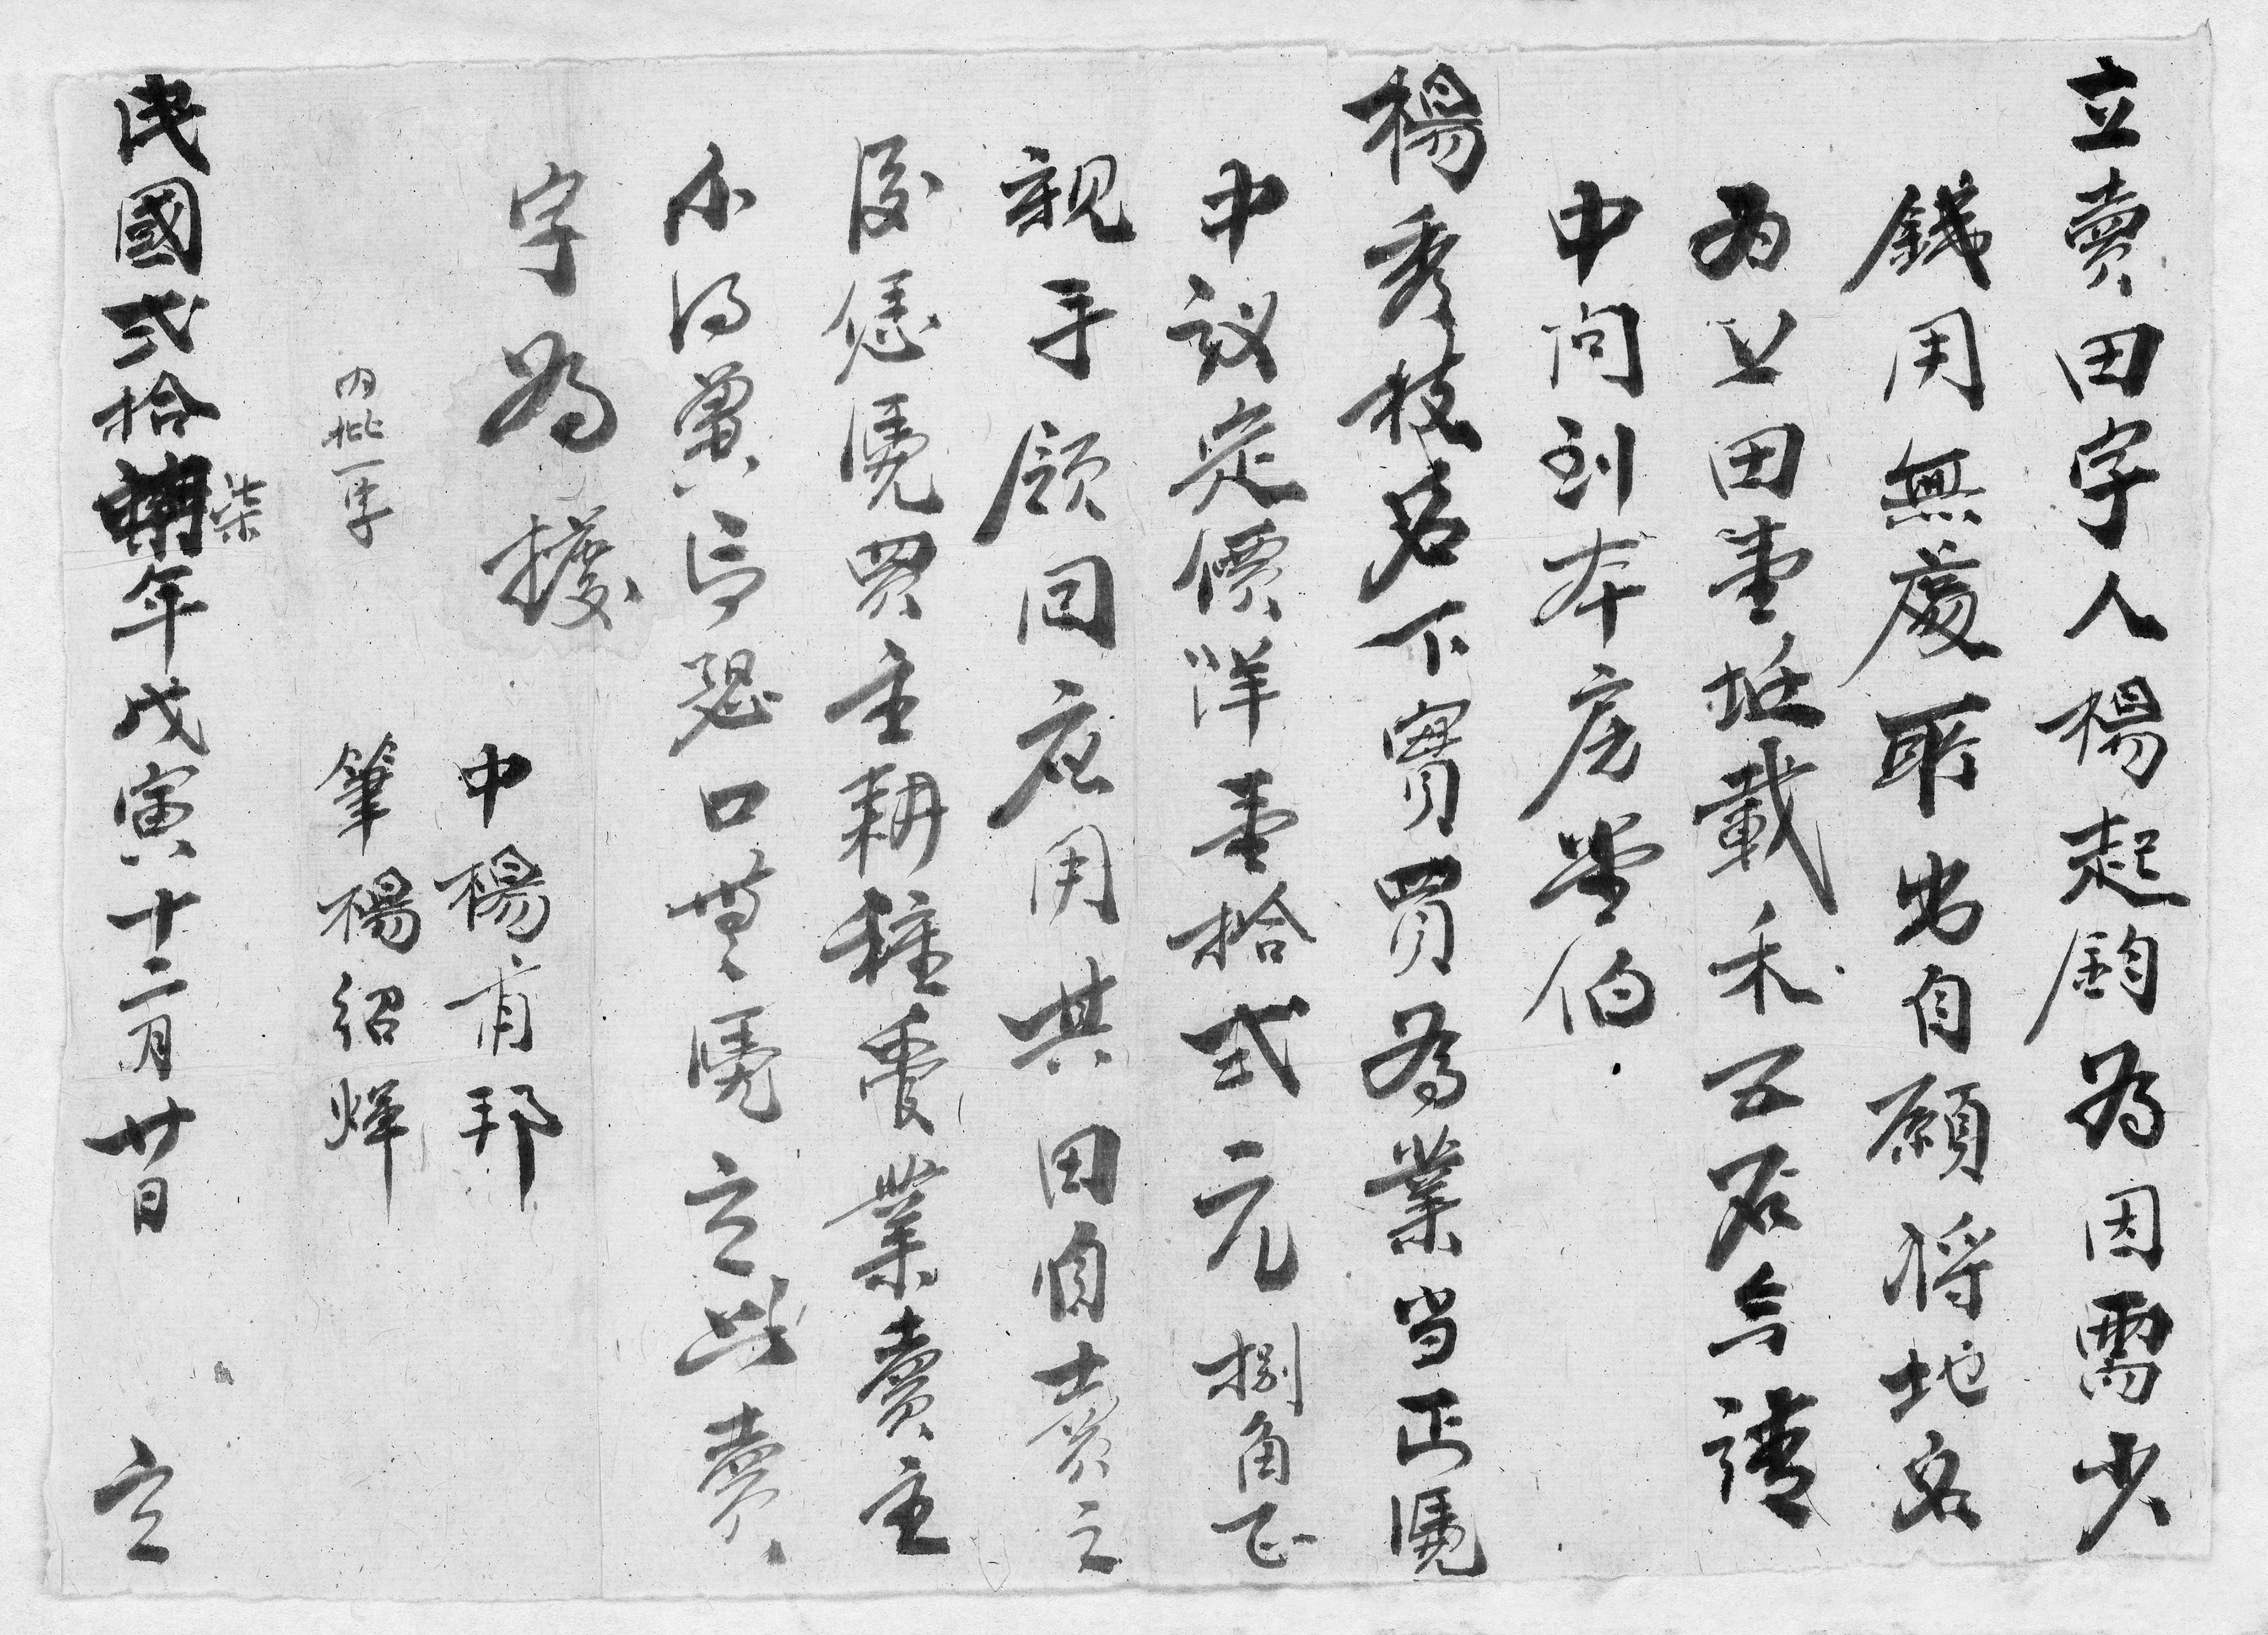 立賣田字人楊起鈞為因需少
錢用無處取出自願將地名
為 田壹坵載禾五 請
中問到本房堂伯
楊秀枝名下實買為業当正憑
中议定價洋壹拾弍元捌角正
親手領回应用其田自賣之
後恁憑買主耕種管業賣主
不得異言恐口無憑立此賣
字為據
中楊甫邦
內批一字
筆楊紹輝
民國弍拾柒年戊寅十二月廿日 立